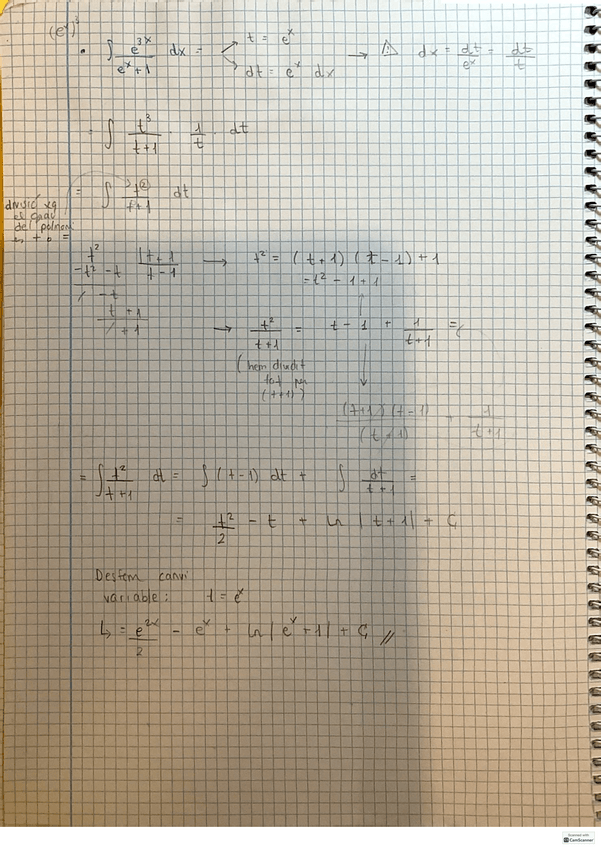 (eˣ)³
• ∫ e³ˣ/(eˣ+1) dx = t = eˣ
dt = eˣ dx → ⚠ dx = dt/eˣ = dt/t
= ∫ t³/(t+1) · 1/t · dt
= ∫ t²/(t+1) dt
divisió xq
el grau
del polinomi
t² |t+1 → t² = (t+1)(t-1)+1
-t² -t t-1 = t² - 1 + 1
/ -t
t +1
/ +1
→ t²/(t+1) = t - 1 + 1/(t+1) =
(hem dividit
tot per
(t+1))
(t+1)(t-1)/(t+1) + 1/(t+1)
= ∫ t²/(t+1) dt = ∫ (t-1) dt + ∫ dt/(t+1) =
= t²/2 - t + ln |t+1| + C
Desfem canvi
variable: t = eˣ
↳ = e²ˣ/2 - eˣ + ln |eˣ+1| + C //
Scanned with
CamScanner